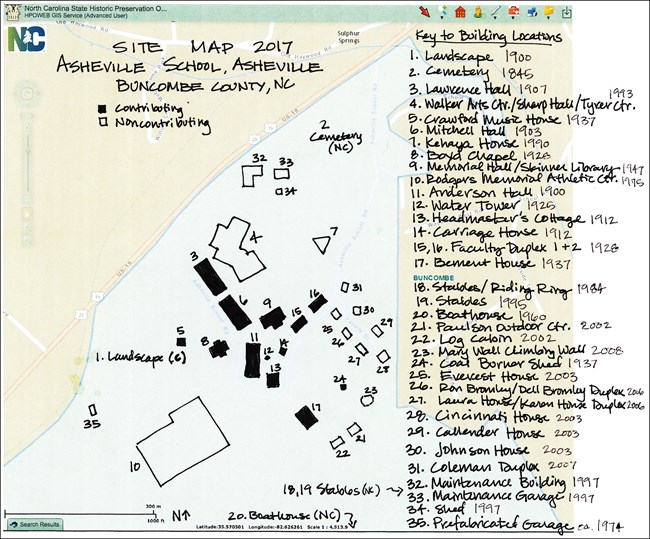 North Carolina State Historic Preservation O...
HPOWEB GIS Service (Advanced User)
NC
SITE MAP 2017
ASHEVILLE SCHOOL, ASHEVILLE
BUNCOMBE COUNTY, NC
Contributing
Noncontributing
Sulphur Springs
US 19
2
Cemetery
(NC)
32
33
34
4
7
3
6
9
16
15
31
30
25
29
26
27
28
5
8
11
12
14
13
1. Landscape (C)
24
23
35
17
21
22
10
18,19 Stables (NC) →
20. Boathouse (NC)
300 m
1000 ft
N↑
Latitude:35.570501 Longitude:-82.626261 Scale 1 : 4,513.9
Search Results
Key to Building Locations
1. Landscape 1900
2. Cemetery 1845
3. Lawrence Hall 1907
1993
4. Walker Arts Ctr./Sharp Hall/Tyrer Ctr.
5. Crawford Music House 1937
6. Mitchell Hall 1903
7. Kehaya House 1990
8. Boyd Chapel 1928
9. Memorial Hall/Skinner Library 1947
10. Rodgers Memorial Athletic Ctr. 1975
11. Anderson Hall 1900
12. Water Tower 1925
13. Headmaster's Cottage 1912
14. Carriage House 1912
15,16. Faculty Duplex 1+2 1928
17. Bement House 1937
BUNCOMBE
18. Stables/Riding Ring 1984
19. Stables 1995
20. Boathouse 1960
21. Paulson Outdoor Ctr. 2002
22. Log Cabin 2002
23. Mary Wall Climbing Wall 2008
24. Coal Burner Shed 1937
25. Everest House 2003
26. Ron Bromley/Dell Bromley Duplex 2006
27. Laura House/Karen House Duplex 2006
28. Cincinnati House 2003
29. Callender House 2003
30. Johnson House 2003
31. Coleman Duplex 2007
32. Maintenance Building 1997
33. Maintenance Garage 1997
34. Shed 1997
35. Prefabricated Garage ca. 1974